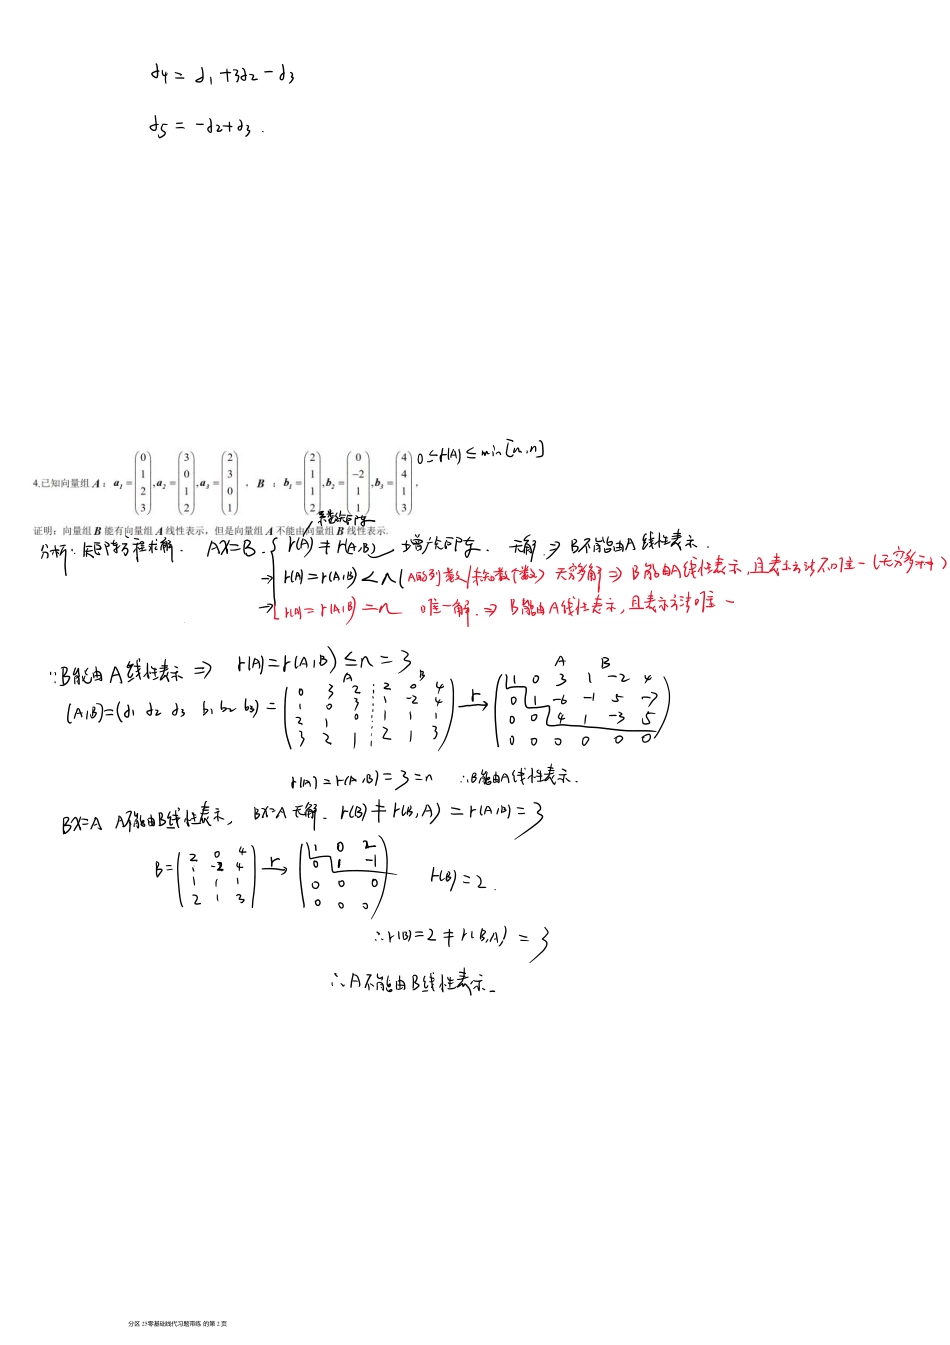 α4 = α1 + 3α2 - α3
α5 = -α2 + α3 .
0 ≤ r(A) ≤ min[m,n]
4.已知向量组 A : a1 = (0 1 2 3), a2 = (3 0 1 2), a3 = (2 3 0 1) , B : b1 = (2 1 1 2), b2 = (0 -2 1 1), b3 = (4 4 1 3) ,
证明: 向量组 B 能有向量组 A 线性表示, 但是向量组 A 不能由向量组 B 线性表示.
系数矩阵
分析: 矩阵方程求解. AX=B. { r(A) ≠ r(A,B) 增广矩阵. 无解 ⇒ B不能由A线性表示.
→ r(A) = r(A,B) < n (A的列数/未知数个数) 无穷多解 ⇒ B能由A线性表示, 且表示方法不唯一 (无穷多种)
→ r(A) = r(A,B) = n 唯一解. ⇒ B能由A线性表示, 且表示方法唯一
∵B能由A线性表示 ⇒ r(A) = r(A,B) ≤ n = 3
A B A B
(A,B)=(α1 α2 α3 b1 b2 b3) = (0 3 2 2 0 4
1 0 3 1 -2 4
2 1 0 1 1 1
3 2 1 2 1 3) r→ (1 0 3 1 -2 4
0 1 -6 -1 5 -7
0 0 4 1 -3 5
0 0 0 0 0 0)
r(A) = r(A,B) = 3 = n ∴B能由A线性表示.
BX=A A不能由B线性表示, BX=A 无解. r(B) ≠ r(B,A) = r(A,B) = 3
B = (2 0 4
1 -2 4
1 1 1
2 1 3) r→ (1 0 2
0 1 -1
0 0 0
0 0 0) r(B) = 2 .
∴r(B) = 2 ≠ r(B,A) = 3
∴A不能由B线性表示.
分区 25零基础线代习题带练 的第 2 页